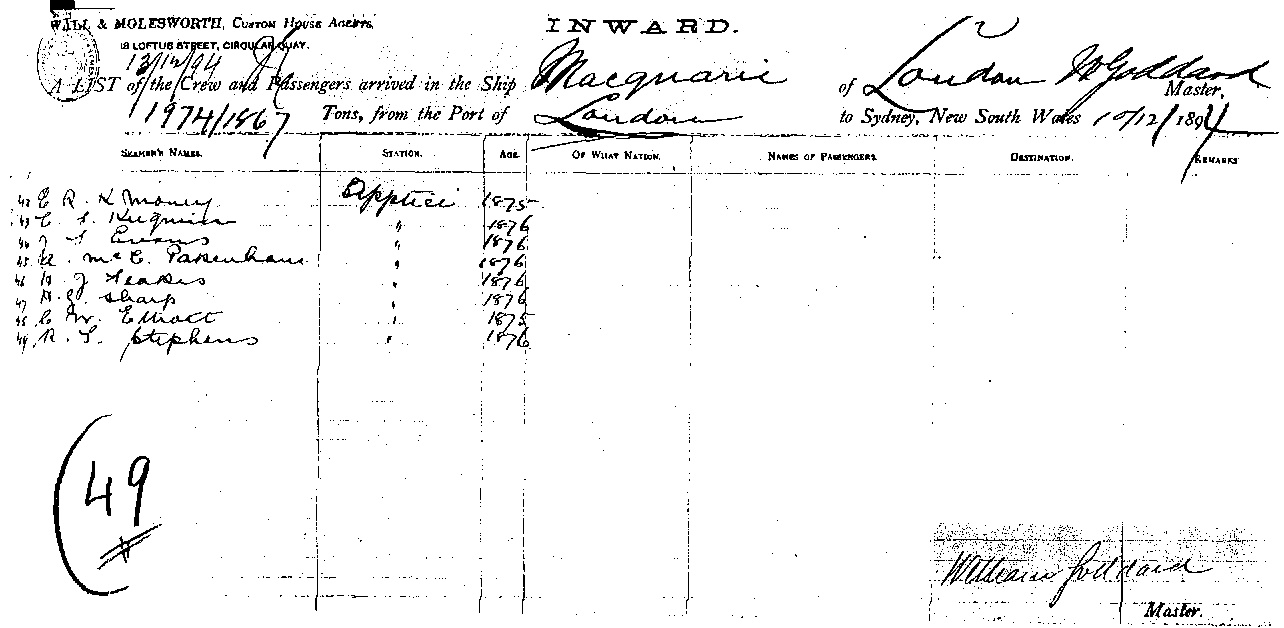 WALL & MOLESWORTH, CUSTOM HOUSE AGENTS,
INWARD.
18 LOFTUS STREET, CIRCULAR QUAY.
13/12/94
A LIST of the Crew and Passengers arrived in the Ship Macquarie of London W Goddard Master,
1974/1867 Tons, from the Port of London to Sydney, New South Wales 10/12/1894
SEAMEN'S NAMES. STATION. AGE OF WHAT NATION. NAMES OF PASSENGERS. DESTINATION. REMARKS
42 E R. K Money Apptice 1875
43 C. S. " 1876
44 J S Evans " 1876
45 A. McC. Pakenham " 1876
46 H J " 1876
47 A. G. Sharp " 1876
48 C W. Elliott " 1875
49 R. L. Stephens " 1876
(49
William Goddard
Master.